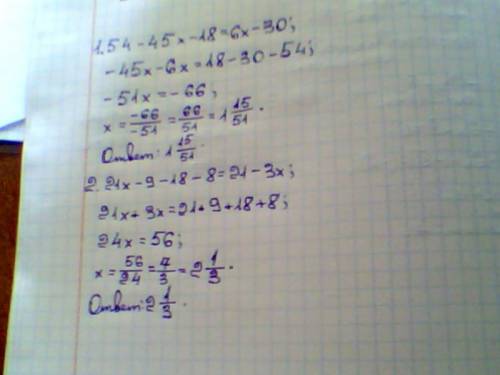 1. 54 - 45x - 18 = 6x - 30;
-45x - 6x = 18 - 30 - 54;
-51x = -66;
x = \frac{-66}{-51} = \frac{66}{51} = 1\frac{15}{51}.
Ответ: 1\frac{15}{51}.
2. 21x - 9 - 18 - 8 = 21 - 3x;
21x + 3x = 21 + 9 + 18 + 8;
24x = 56;
x = \frac{56}{24} = \frac{7}{3} = 2\frac{1}{3}.
Ответ: 2\frac{1}{3}.